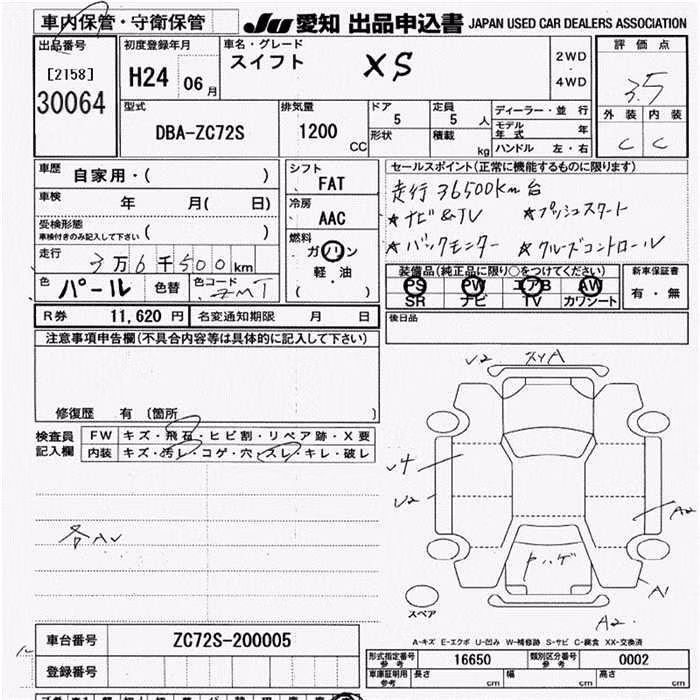 車内保管・守衛保管 JU 愛知 出品申込書 JAPAN USED CAR DEALERS ASSOCIATION
出品番号 初度登録年月 車名・グレード 評価点
[2158] H24 06月 スイフト XS 2WD・4WD 3.5
30064
型式 排気量 ドア 定員 ディーラー・並行 外装 内装
DBA-ZC72S 1200CC 5 5人 モデル年式 年 C C
形状 積載 kg ハンドル 左・右
車歴 自家用・( ) シフト FAT セールスポイント(正常に機能するものに限ります)
車検 年 月( 日) 冷房 AAC 走行36500km台
受検形態 ( ) ★ナビ&TV ★プッシュスタート
車検付きのみ記入して下さい
走行 3万6千500km 燃料 ガソリン ★バックモニター ★クルーズコントロール
軽・油
( )
色 パール 色替 色コード ZMT 装備品(純正品に限り○をつけてください) 新車保証書
PS PW エアB AW 有・無
SR ナビ TV カワシート
R券 11,620円 名変通知期限 月 日 後日品
注意事項申告欄(不具合内容等は具体的に記入して下さい)
修復歴 有 〔箇所 〕
検査員記入欄 FW キズ・飛石・ヒビ割・リペア跡・X要
内装 キズ・汚レ・コゲ・穴・スレ・キレ・破レ
U2 スリA
U4
U2
A2
各AU
ハゲ
A1
スペア A2
A-キズ E-エクボ U-凹み W-補修跡 S-サビ C-腐食 XX-交換済
車台番号 ZC72S-200005
登録番号
形式指定番号 参考 16650 類別区分番号 参考 0002
車庫証明用 参考 長さ cm 幅 cm 高さ cm